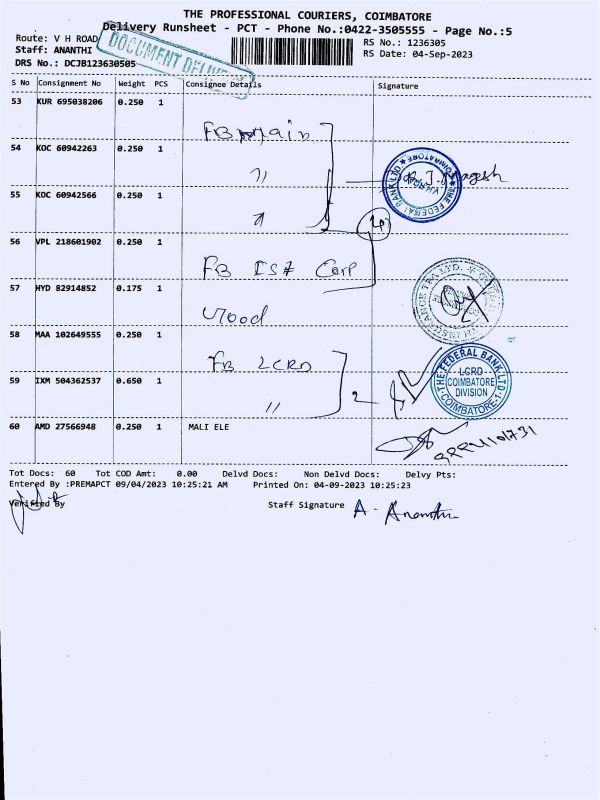 THE PROFESSIONAL COURIERS, COIMBATORE
Delivery Runsheet - PCT - Phone No.:0422-3505555 - Page No.:5
Route: V H ROAD
RS No.: 1236305
Staff: ANANTHI
RS Date: 04-Sep-2023
DRS No.: DCJB123630505
DOCUMENT
S No Consignment No Weight PCS Consignee Details Signature
53 KUR 695038206 0.250 1
FB Main
54 KOC 60942263 0.250 1
"
THE FEDERAL BANK LTD
COIMBATORE
55 KOC 60942566 0.250 1
"
4
56 VPL 218601902 0.250 1
FB Corp
57 HYD 82914852 0.175 1
58 MAA 102649555 0.250 1
FB LCRD
59 IXM 504362537 0.650 1
"
2
THE FEDERAL BANK LTD.
LCRD
COIMBATORE
DIVISION
COIMBATORE-1
60 AMD 27566948 0.250 1 MALI ELE
Tot Docs: 60 Tot COD Amt: 0.00 Delvd Docs: Non Delvd Docs: Delvy Pts:
Entered By :PREMAPCT 09/04/2023 10:25:21 AM Printed On: 04-09-2023 10:25:23
Verified By
Staff Signature A. Ananthi